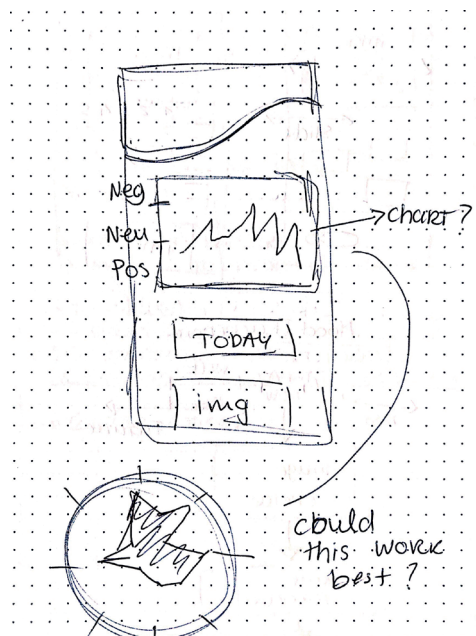 Neg
Neu
Pos
chart?
TODAY
img
could
this work
best?